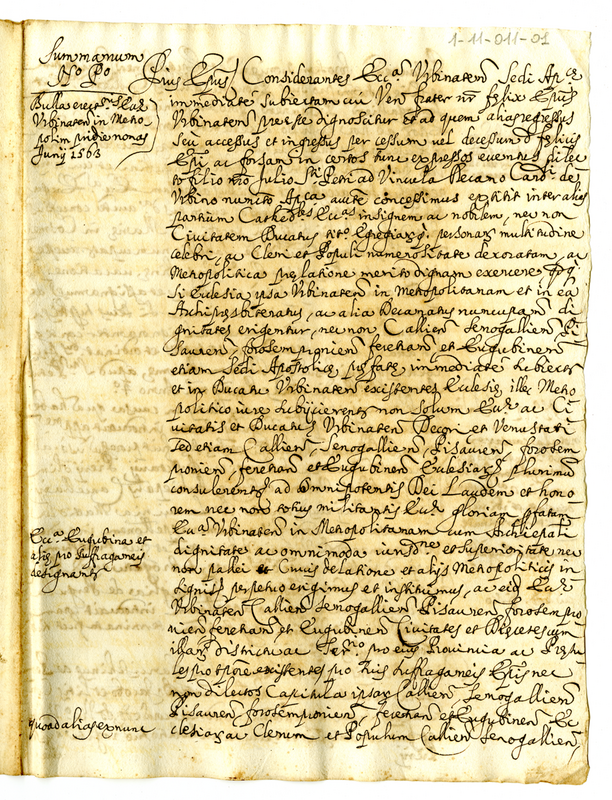 1-11-011-01
Summarium
N.o P.o
Bulla erect.s Eccl.
Urbinaten in Metro
polim pridie nonas
Junij 1563
Pius Epus/ Considerantes Ecc.a Urbinaten Sedi Ap.ce
immediate subiectam cui Ven frater nr felix Epus
Urbinaten preesse dignoscitur et ad quem alias regressus
seu accessus et ingressus per cessum vel decessum d. felicis
Epi ac forsan in certos tunc expressos eventus dilec
to filio nro Julio S.ti Petri ad Vincula Decano Card. de
Urbino nuncto Ap.ca aucte concessimus extitit inter alias
partium Cathed.les Ecc.as insignem ac nobilem, nec non
Civitatem Ducatus tit.o Egregiarq. personar multitudine
celebri, ac Cleri et Populi numerositate decoratam, ac
Metropolitica prelatione merito dignam existere
Si Ecclesia ipsa Urbinaten in Metropolitanam et in ea
Archipresbiteratus, ac alia Decanatus nuncupan di
gnitates erigentur, nec non Callien Senogallien Pi
sauren forosempronien feretran et Eugubinen
etiam Sedi Apostolice prefate immediate subiecte
et in Ducatu Urbinaten existentes Ecclesie illi Metro
politico iure subijcerentur non solum Eccl. ac Ci
vitatis et Ducatus Urbinaten Decori et Venustati
sed etiam Callien, Senogallien, Pisauren, forosem
pronien, feretran et Eugubinen Ecclesiarq plurimum
consulerent ad Omnipotentis Dei Laudem et hono
rem nec non totius militantis Eccl. gloriam pfatam
Ecc.a Urbinaten in Metropolitanam cum Archiepali
dignitate ac omnimoda iurisd.ne et superioritate nec
non pallei et Crucis delatione et alijs Metropoliticis in
signijs perpetuo erigimus et instituimus, ac eid Eccl.
Urbinaten Callien Senogallien Pisauren forosempro
nien feretran et Eugubinen Civitates et Dioceses cum
illar districtu ac Terr.rio pro eius Provincia ac Presu
les pro tpore existentes pro suis suffraganeis Epis nec
non dilectos Capitula ipsar Callien Senogallien
Pisauren forosempronien, feretran et Eugubinen Ec
clesiar ac Clerum et Populum Callien Senogallien,
Ecc.a Eugubina et
aliis pro suffraganeis
designantr
quoad alias ex nunc